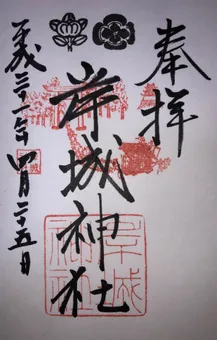 奉拝
岸城神社
平成三十一年四月二十五日
岸城
神社